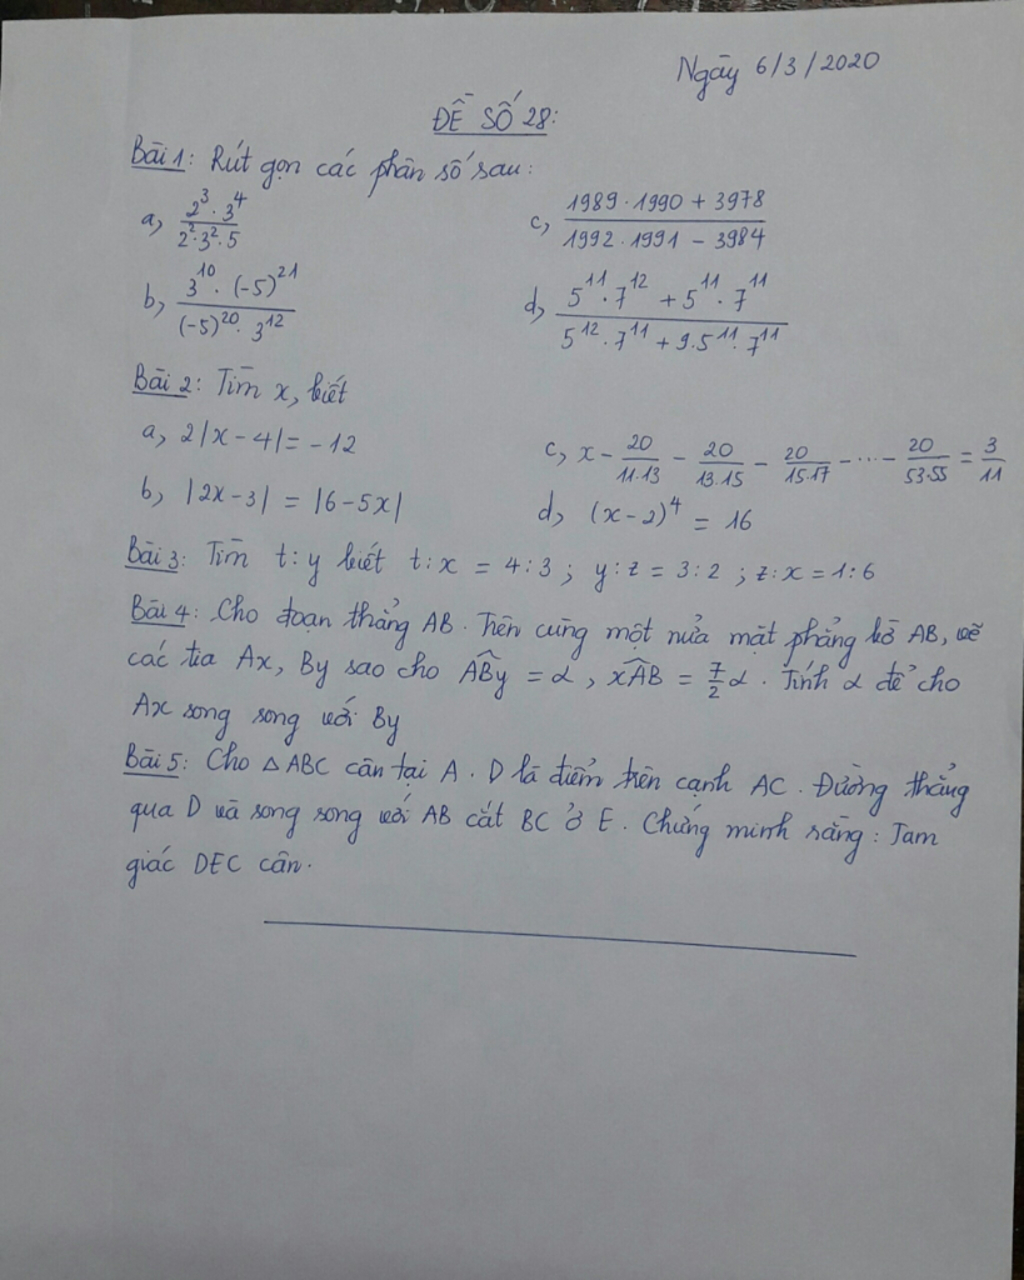 Ngày 6/3/2020
ĐỀ SỐ 28:
Bài 1: Rút gọn các phân số sau:
a, (2^3 . 3^4)/(2^2 . 3^2 . 5)
c, (1989 . 1990 + 3978)/(1992 . 1991 - 3984)
b, (3^10 . (-5)^21)/((-5)^20 . 3^12)
d, (5^11 . 7^12 + 5^11 . 7^11)/(5^12 . 7^11 + 9.5^11 . 7^11)
Bài 2: Tìm x, biết
a, 2|x - 4| = - 12
c, x - 20/11.13 - 20/13.15 - 20/15.17 - ... - 20/53.55 = 3/11
b, |2x - 3| = |6 - 5x|
d, (x - 2)^4 = 16
Bài 3: Tìm t:y biết t:x = 4:3 ; y:z = 3:2 ; z:x = 1:6
Bài 4: Cho đoạn thẳng AB. Trên cùng một nửa mặt phẳng bờ AB, vẽ
các tia Ax, By sao cho ABy = α, xAB = 7/2 α. Tính α để cho
Ax song song với By
Bài 5: Cho △ ABC cân tại A. D là điểm trên cạnh AC. Đường thẳng
qua D và song song với AB cắt BC ở E. Chứng minh rằng: Tam
giác DEC cân.